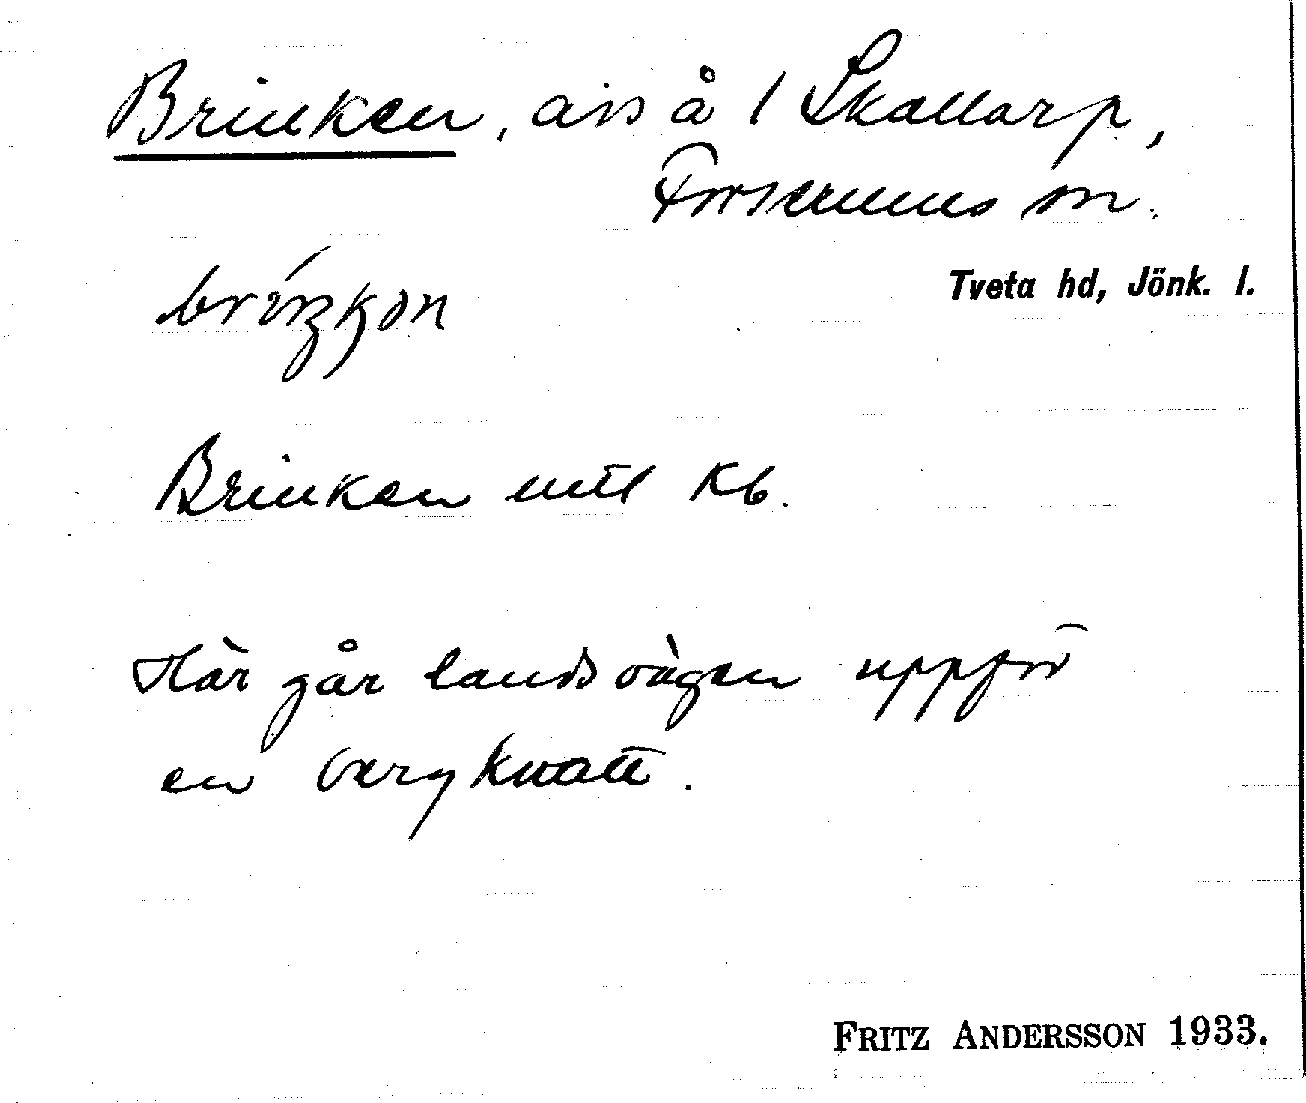 Brinken, avs å 1 Skallarp,
Forserums sn.
Tveta hd, Jönk. l.
Brinken mtl Kb.
Här går landsvägen uppför
en bergknatt.
FRITZ ANDERSSON 1933.